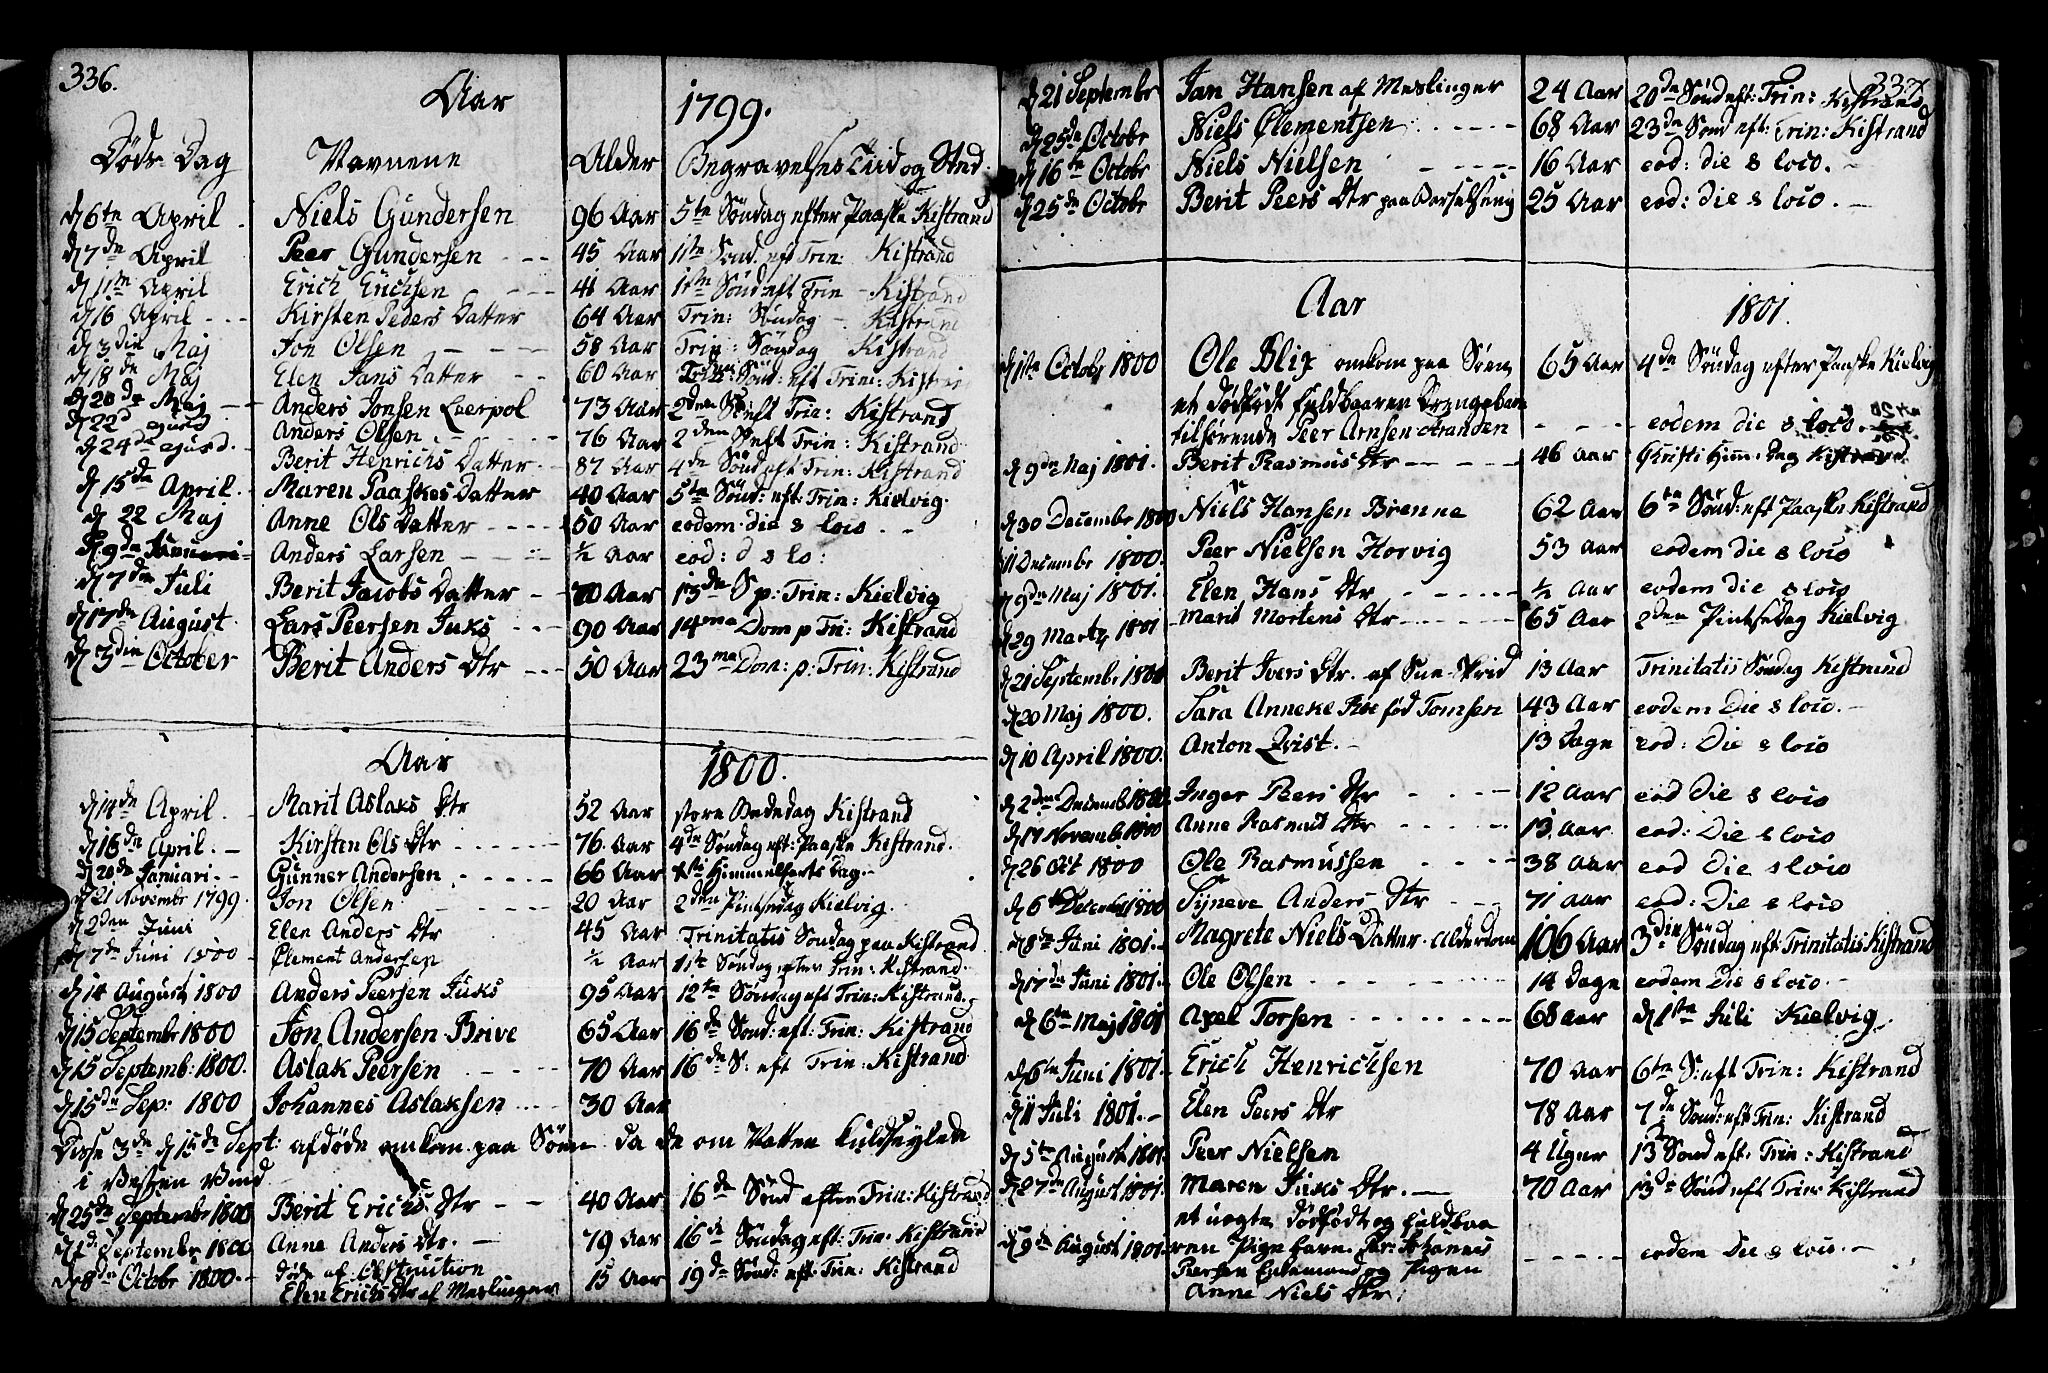 336.
Aar 1799.
Døds Dag Navnene Alder Begravelses Tiid og Sted.
d 6te April Niels Gundersen 96 Aar 5te Søndag efter Paaske Kistrand
d 7de April Peer Gundersen 45 Aar 11te Sønd. eft Trin: Kistrand
d 11te April Erich Erichsen 41 Aar 1ste Sønd eft Trin Kistrand
d 16 April Kirsten Peders Datter 64 Aar Trin: Søndag Kistrand
d 3die Maj Jon Olsen 58 Aar Trin: Søndag Kistrand
d 18de Maj Elen Jans Datter 60 Aar Sønd: eft Trin: Kistrand
d 20de Maj Anders Jonsen Laerpol 73 Aar 2den S. eft Trin: Kistrand
d 22d ejusd Anders Olsen 76 Aar 2den S. eft Trin: Kistrand
d 24de ejusd. Berit Henrichs Datter 87 Aar 4de Sønd eft Trin: Kistrand
d 15de April Maren Paaskes Datter 40 Aar 5te Sønd: eft: Trin: Kielvig.
d 22 Maj Anne Ols Datter 50 Aar eodem die & loco
d 9de Januari Anders Larsen ½ Aar eod: d & lo:
d 7de Juli Berit Jacobs Datter 70 Aar 15de S p: Trin: Kielvig
d 17de August Lars Peersen Juks 90 Aar 14ma Dom p Tri: Kistrand
d 3die October Berit Anders Dtr 50 Aar 23ma Dom: p: Trin: Kistrand
Aar 1800.
d 14de April. Marit Aslaks Dtr 52 Aar store Bededag Kistrand
d 16de April. Kirsten Ols Dtr 76 Aar 4de Søndag eft: Paaske Kistrand.
d 20de Januari. Gunner Andersen 66 Aar Xsti Himmelferts Dag.
d 21 Novembr 1799. Jon Olsen 20 Aar 2den Pintsedag Kielvig.
d 2den Juni Elen Anders Dtr 45 Aar Trinitatis Søndag paa Kistrand
d 7de Juni 1800 Clement Andersen ½ Aar 11te Søndag efter Trin: Kistrand.
d 14 August 1800 Anders Peersen Juks 95 Aar 12te Søndag eft Trin: Kistrand
d 15 Septembr 1800 Jon Andersen Brive 65 Aar 16de Sønd: eft: Trin: Kistrand
d 15 Septemb: 1800. Aslak Peersen 70 Aar 16de S: eft Trin: Kistrand
d 15de Sep: 1800 Johannes Aslaksen 30 Aar
Disse 3de d 15de Sept: afdøde omkom paa Søen da de om Natten kuldseylede
i Besken Bund
d 25de Septembr 1800 Berit Erichs Dtr 40 Aar 16de Sønd efter Trin: Kistrand
d 1de Septembr 1800 Anne Anders Dtr. 79 Aar 16de Søndag eft: Trin: Kistrand
d 8de Octobr 1800. døde af Obstruction
Elen Erichs Dtr af Maslinger 15 Aar 19de Sønd: eft: Trin: Kistrand
337
d 21 Septembr Jan Hansen af Meslinger 24 Aar 20de Sønd eft: Trin: Kistrand
d 25de Octobr Niels Clementsen 68 Aar 23de Sønd eft: Trin: Kistrand
d 16te Octobr Niels Nielsen 16 Aar eod: die & loco.
d 25de Octobr Berit Peers Dtr paa Barselseng 25 Aar eod: die & loco.
Aar 1801.
d 1ste Octobr 1800 Ole Blix omkom paa Søen 65 Aar 4de Søndag efter Paaske Kielvig
et dødfødt fuldbaaren Drengebarn
tilhørende Peer Arnsen Stranden eodem die & loco.
d 9de Maj 1801. Berit Rasmus Dtr 46 Aar Christi Him: Dag Kistrand.
d 30 December 1800 Niels Hansen Brenne 62 Aar 6te Sønd: eft Paaske Kistrand
d 1 Decembr 1800. Peer Nielsen Horvig 53 Aar eodem die & loco
d 9de Maj 1801. Elen Hans Dtr ½ Aar eodem die & loco
d 29 Martz 1801 Marit Mortens Dtr 65 Aar 2den Pintse Dag Kielvig
d 21 Septembr 1800 Berit Ivers Dtr. af 13 Aar Trinitatis Søndag Kistrand
d 20 Maj 1800. Sara Anneke Ribe fød Tomsen 43 Aar eodem Die & loco.
d 10 April 1800. Anton Qvist. 13 Dage eod: Die & loco
d 2den Decemb 1800. Inger Peers Dtr 12 Aar eod Die & loco
d 17 Novemb 1800 Anne Rasmus Dtr 13 Aar eod: Die & loco
d 26 Oct 1800 Ole Rasmussen 38 Aar eod Die & loco
d 6te Decembr 1800 Syneve Anders Dtr 71 Aar eod: Die & loco
d 8de Juni 1801. Magrete Niels Datter. Alderdom 106 Aar 3die Søndag eft Trinitatis Kistrand
d 17de Juni 1801. Ole Olsen 14 Dage eodem Die & loco.
d 6te Maj 1801 Axel Torsen 68 Aar d 1ste Juli Kielvig.
d 6te Juni 1801. Erich Henrichsen 70 Aar 6te S: eft Trin: Kistrand
d 11 Juli 1801. Elen Peers Dtr 78 Aar 7de Sønd: eft Trin: Kistrand
d 5te August 1801 Peer Nielsen 4 Uger 13de Sønd eft: Trin: Kistrand
d 27de August 1801. Maren Juks Dtr. 70 Aar 13de Sønd eft Trin: Kistrand
et uægte dødfødt og fuldbaa
d 9de August 1801. ren Pigebarn. Far: Johannes eodem Die & loco.
Peersen Enkemand og Pigen
Anne Niels Dtr.